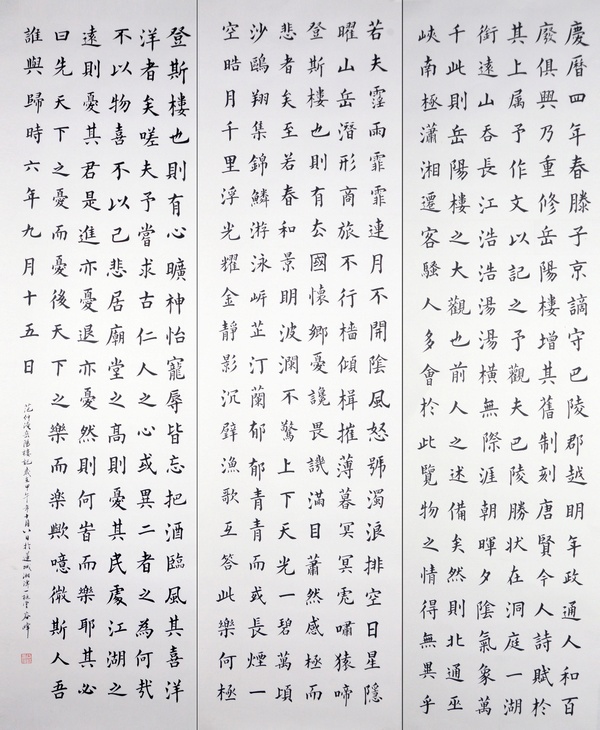 慶曆四年春滕子京謫守巴陵郡越明年政通人和百
廢俱興乃重修岳陽樓增其舊制刻唐賢今人詩賦於
其上属予作文以記之予觀夫巴陵勝狀在洞庭一湖
銜遠山吞長江浩浩湯湯橫無際涯朝暉夕陰氣象萬
千此則岳陽樓之大觀也前人之述備矣然則北通巫
峽南極瀟湘遷客騷人多會於此覽物之情得無異乎
若夫霪雨霏霏連月不開陰風怒號濁浪排空日星隱
曜山岳潛形商旅不行檣傾楫摧薄暮冥冥虎嘯猿啼
登斯樓也則有去國懷鄉憂讒畏譏滿目蕭然感極而
悲者矣至若春和景明波瀾不驚上下天光一碧萬頃
沙鷗翔集錦鱗游泳岍芷汀蘭郁郁青青而或長煙一
空晧月千里浮光耀金靜影沉璧漁歌互答此樂何極
登斯樓也則有心曠神怡寵辱皆忘把酒臨風其喜洋
洋者矣嗟夫予嘗求古仁人之心或異二者之為何哉
不以物喜不以己悲居廟堂之高則憂其民處江湖之
遠則憂其君是進亦憂退亦憂然則何峕而樂耶其必
曰先天下之憂而憂後天下之樂而楽歟噫微斯人吾
誰與歸時六年九月十五日
范仲淹岳陽樓記